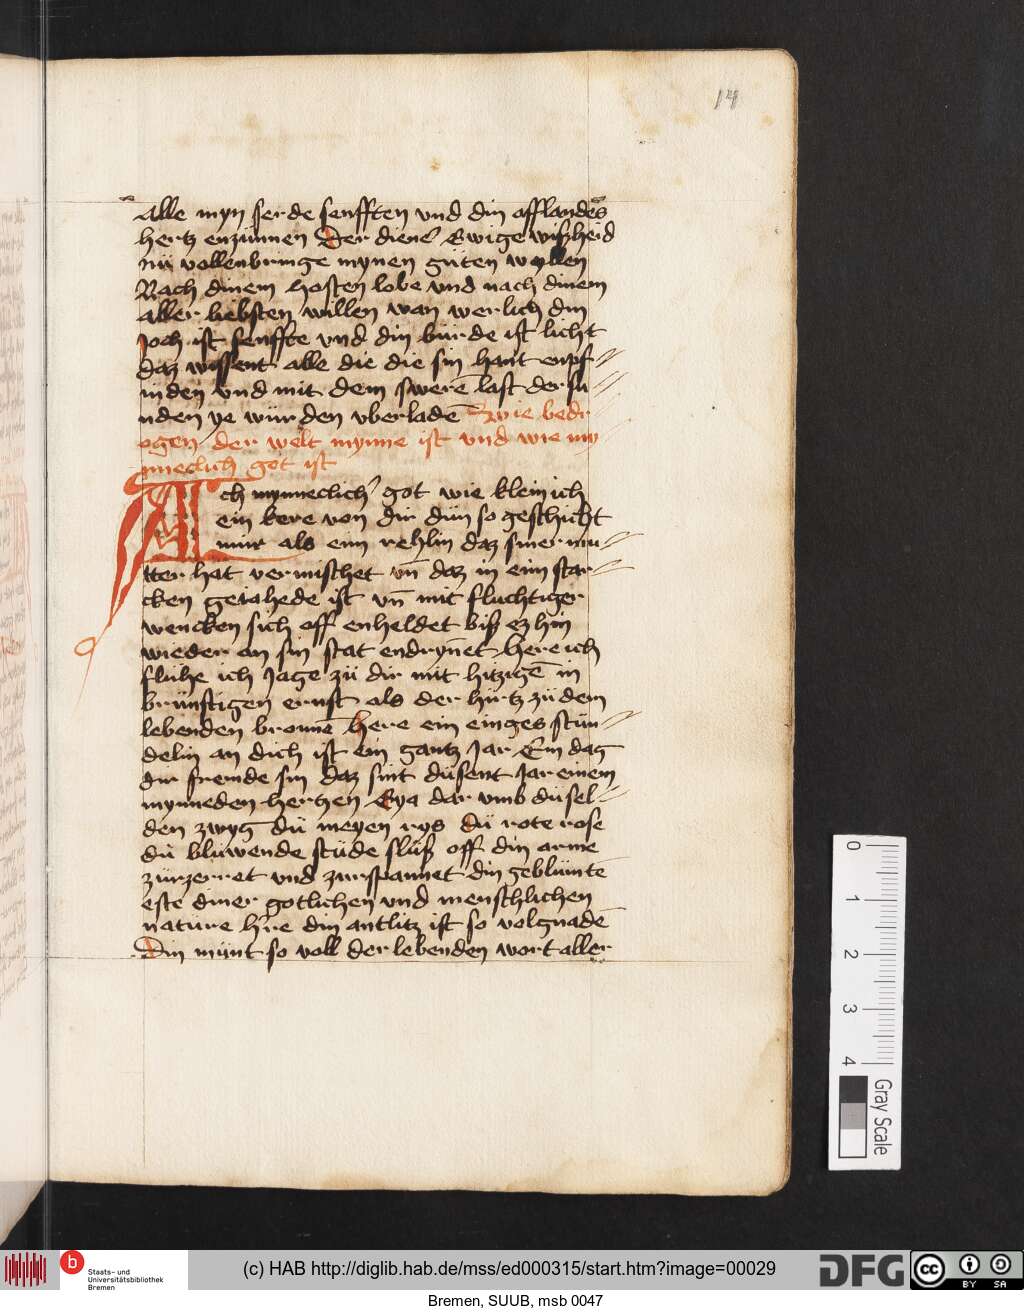 14
Alle myn serde senfften vnd din afflandes
hertz enzünnen Der diener Ewige wißheid
nü vollenbringe mynen güten wollen
Nach dinem hosten lobe vnd nach dinem
aller liebsten willen wan werlich din
Joch ist senffte vnd din bürde ist licht
daz wissent alle die die sin hant enpf
inden vnd mit dem swerē last der su
nden ye würden vberladē Wie bedr
ogen der welt mynne ist vnd wie my
nneclich got ist
Ach mynneclich' got wie klein ich
ein kere von dir dün so geschicht
mir als eim rehlin daz siner mu
tter hat vermischet vn̄ daz in eim star
cken geiahede ist vn̄ mit fluchtiger
wencken sich off enheldet biß ez hin
wieder an sin stat endrȳnet here ich
fluhe ich Jage zü dir mit hitzigē in
brünstigen ernst als der hirtz zü dem
lebenden bronnē here ein einges stün
delin an dich ist ein gantz Jar Ein dag
dir fremde sin daz sint düsent Jar einem
mynneden hertzen Eya dar vmb dü sel
den zwyg dü meyen rys dü rote rose
dü bluwende stüde slüß off din arme
zürzerret vnd zurspannet din geblümte
este diner gotlichen vnd menschlichen
nature h're din antlitz ist so volgnadē
Din münt so voll der lebenden wort aller
0
1
2
3
4
Gray Scale
b
Staats- und
Universitätsbibliothek
Bremen
(c) HAB http://diglib.hab.de/mss/ed000315/start.htm?image=00029
DFG
cc
BY SA
Bremen, SUUB, msb 0047